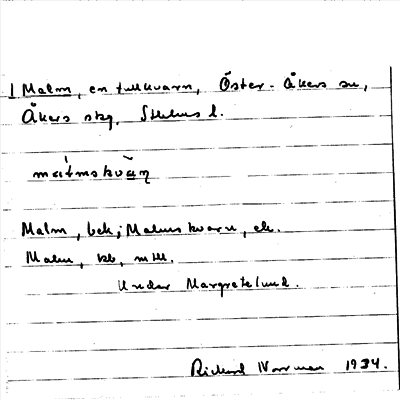 1 Malm, en tullkvarn, Öster-Åkers sn,
Åkers skg, Sthlms l.
Malm, bek; Malmskvarn, ek.
Malm, kb, mtl.
Under Margretelund.
Rickard Norrman 1934.